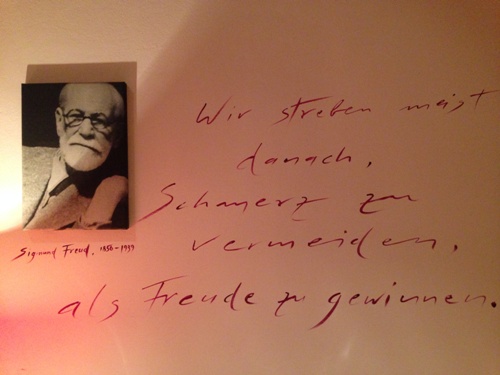 Wir streben meist
danach,
Schmerz zu
vermeiden,
als Freude zu gewinnen.
Sigmund Freud, 1856-1939